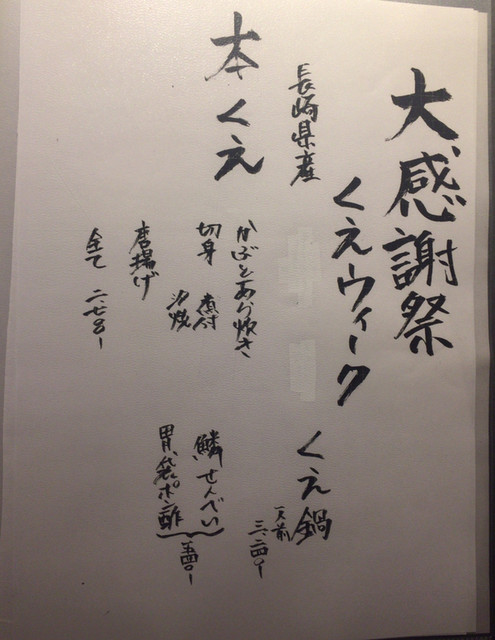 大感謝祭
くえウィーク
長崎県産
本くえ
かぶとあら炊き
切身 煮付
汐焼
唐揚げ
全て 二、七〇〇ー
くえ鍋
一人前
三、二四〇ー
鱗せんべい
胃袋ポン酢